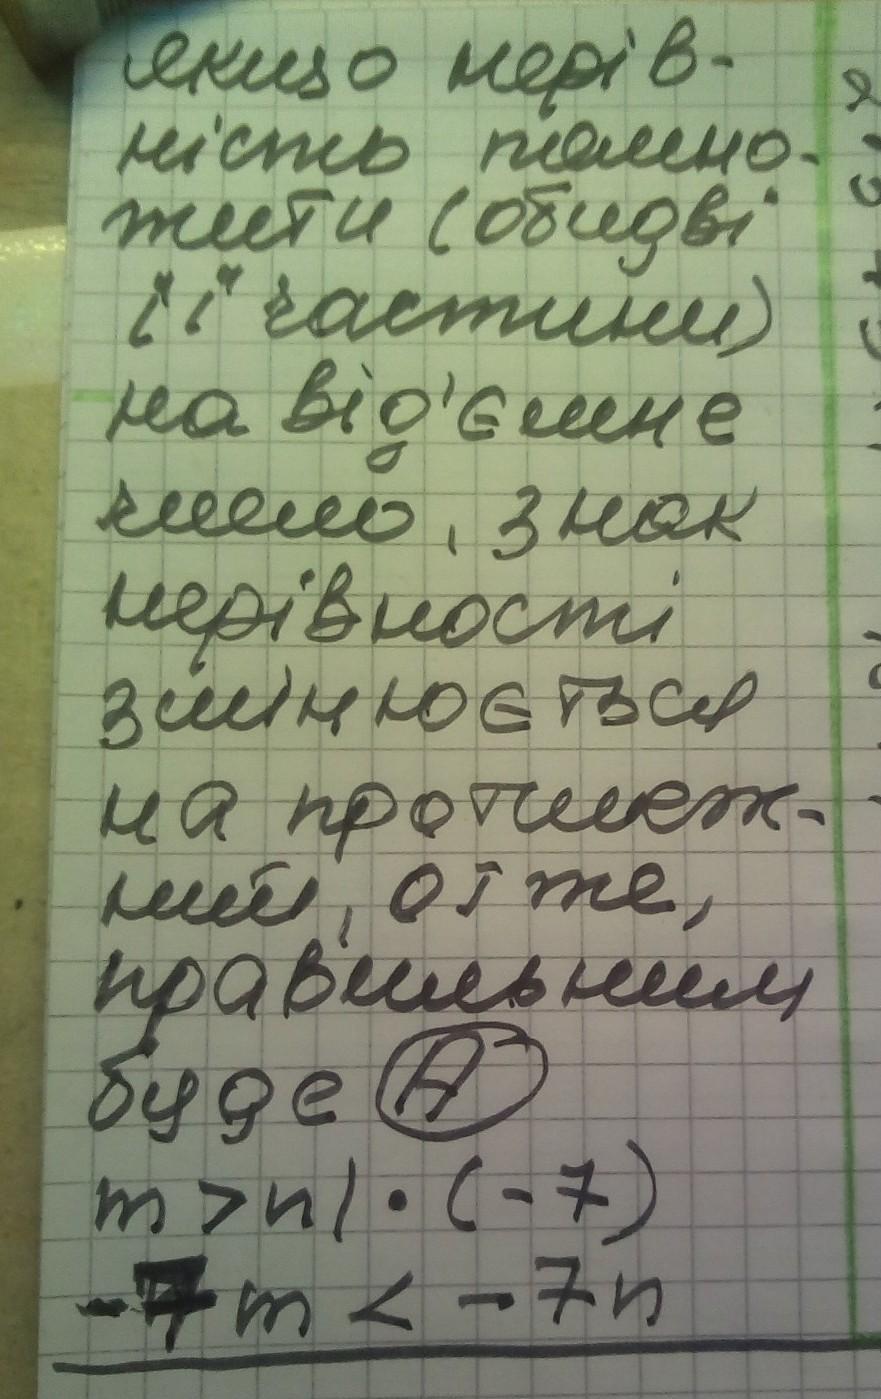 якщо нерів-
ність помно-
жити (обидві
її частини)
на від'ємне
число, знак
нерівності
змінюється
на протилеж-
ний, отже,
правильним
буде А
m > n | · (-7)
-7m < -7n